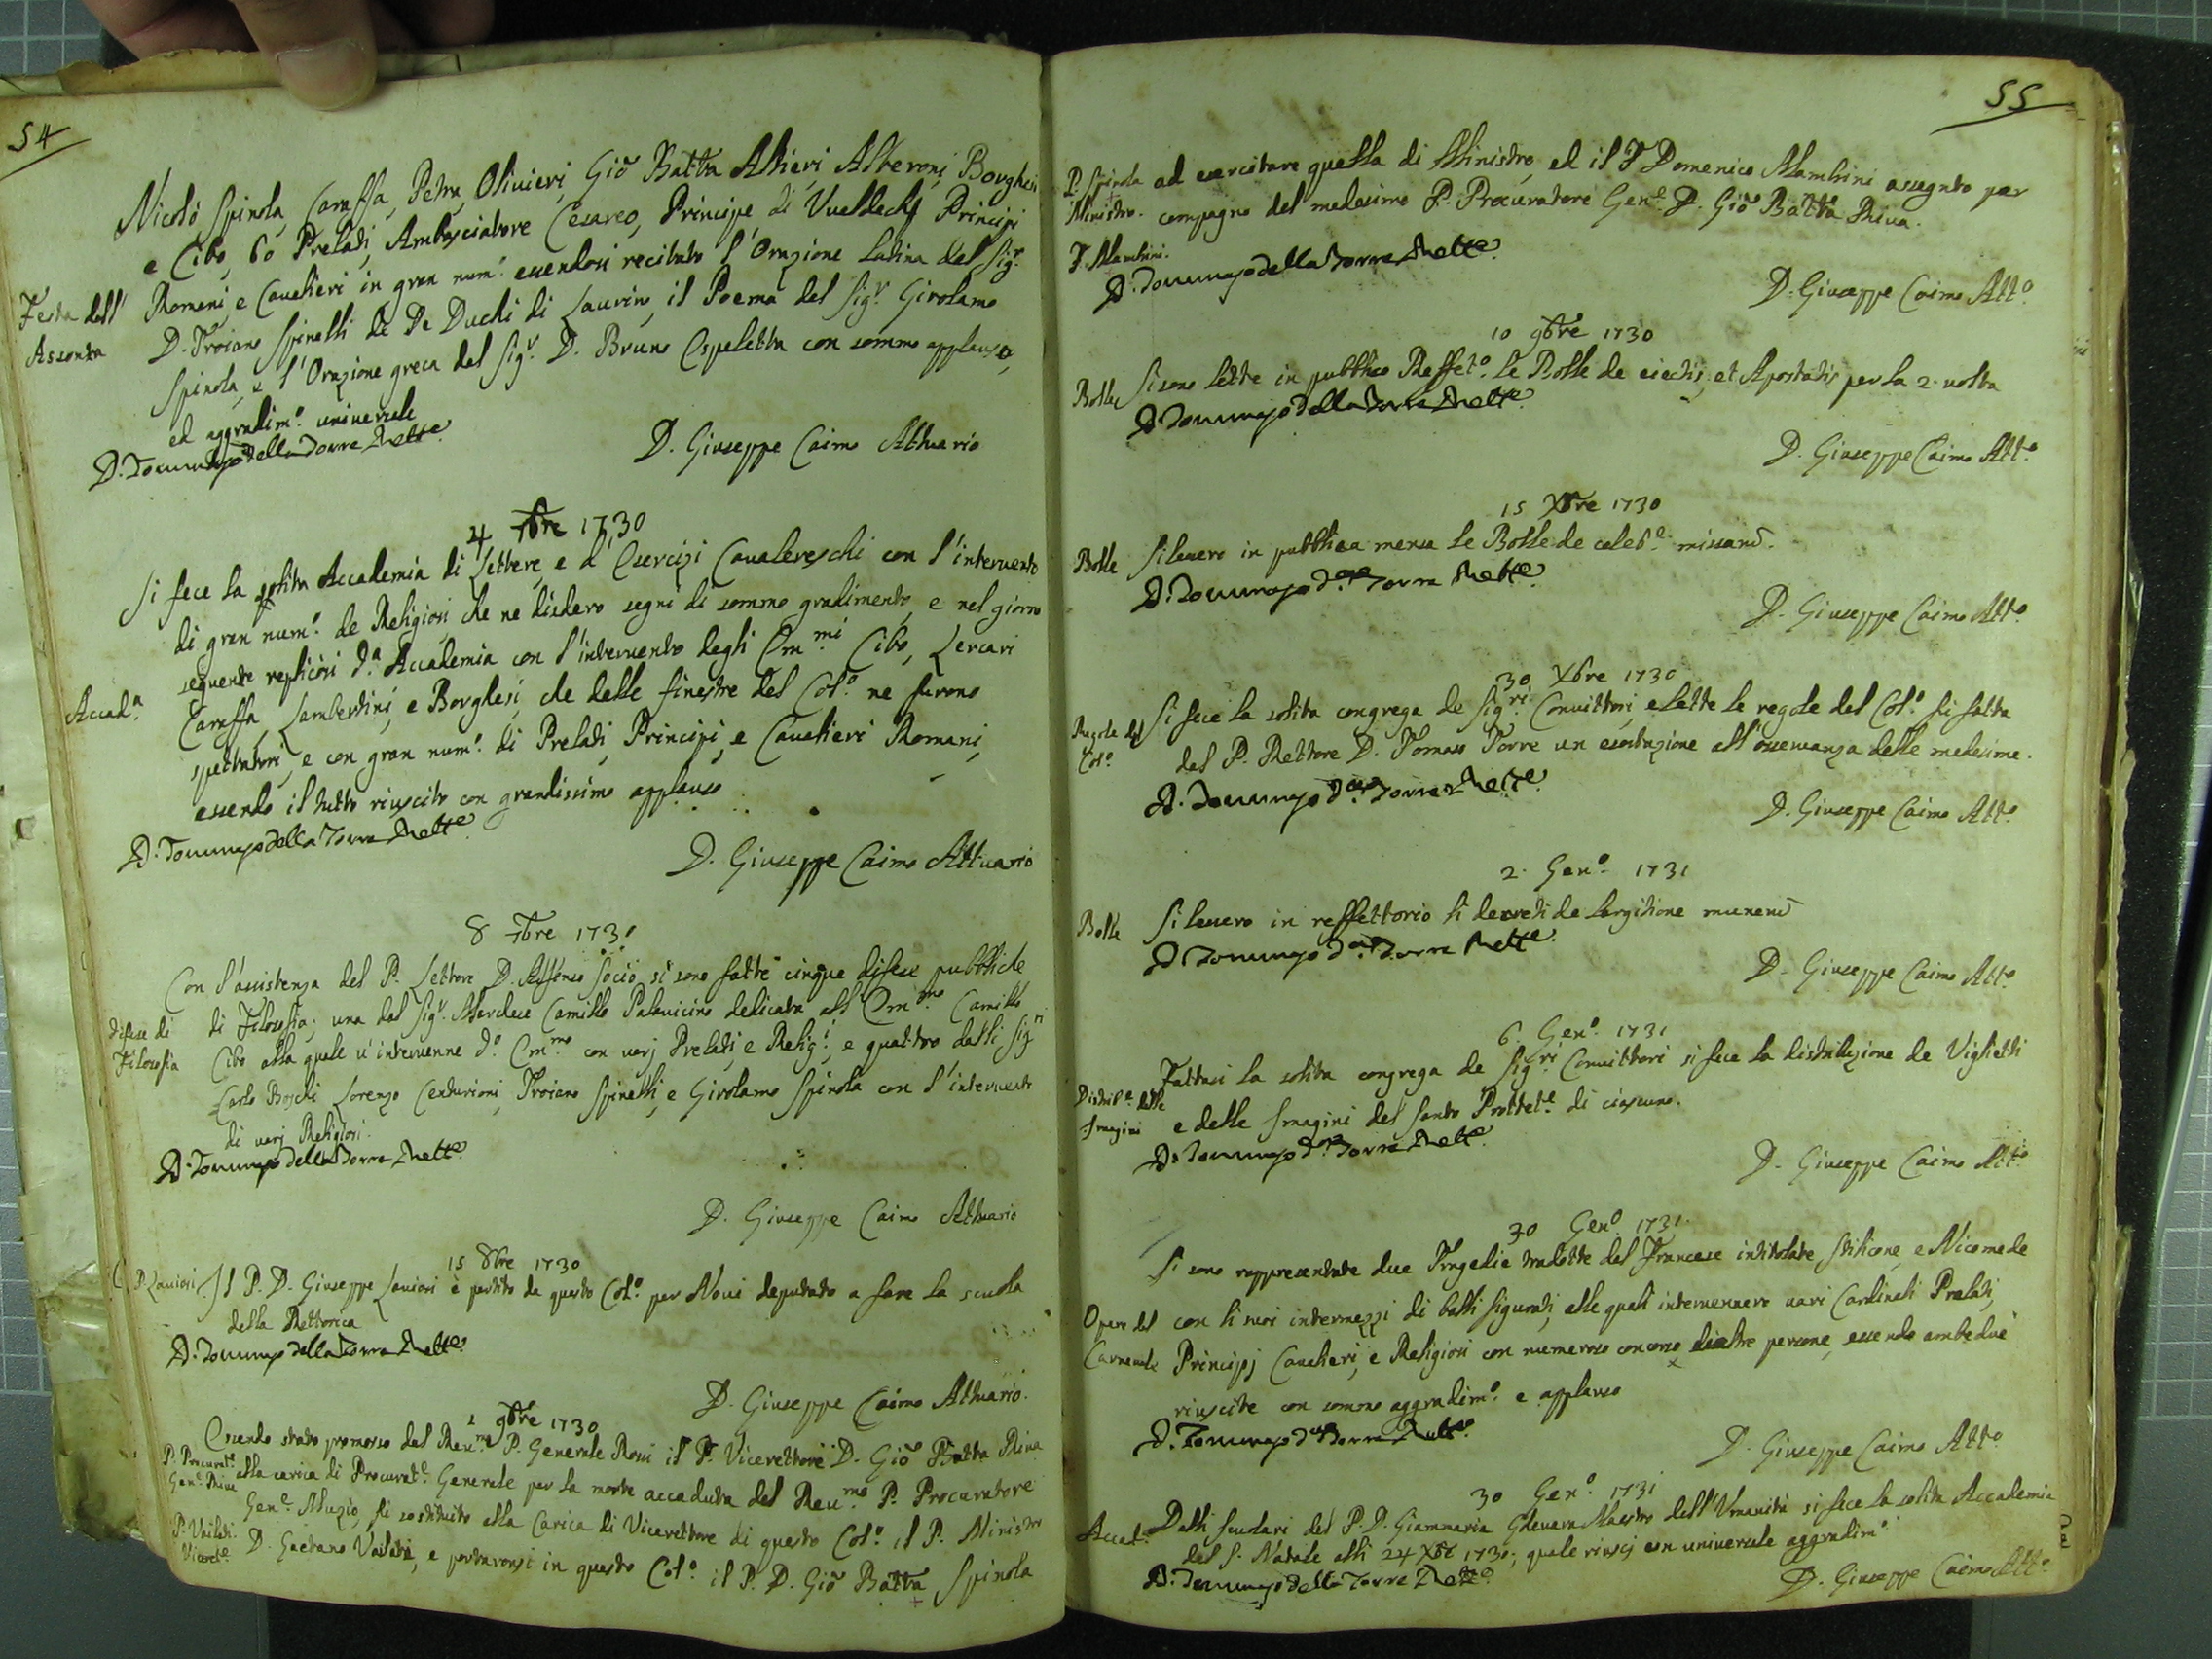 54
Nicolò Spinola, Caraffa, Petra, Olivieri, Gio Batta Altieri, Alberoni, Borghesi
e Cibo, 60 Prelati, Ambasciatore Cesareo, Principe di Principi
Festa dell' Romani, e Cavalieri in gran num.o essendosi recitata l'Orazione Latina dal Sig.r
Assonta D. Troiano Spinelli de De Duchi di Laurino, il Poema dal Sig.r Girolamo
Spinola, e l'Orazione greca dal Sig.r D. Bruno Espeletta con sommo applauso,
ed aggradim.o universale
D. Tommaso della Torre Rett.e
D. Giuseppe Caimo Attuario
4 7bre 1730
Si fece la solita Accademia di Lettere, e d'Esercizi Cavalereschi con l'intervento
di gran num.o de Religiosi, che ne diedero segni di sommo gradimento, e nel giorno
seguente replicòsi d.a Accademia con l'intervento degli Em.mi Cibo, Lercari
Accad.a Caraffa, Lambertini, e Borghesi, che dalle finestre del Col.o ne furono
spettatori, e con gran num.o di Prelati, Principi, e Cavalieri Romani,
essendo il tutto riuscito con grandissimo applauso
D. Tommaso della Torre Rett.e
D. Giuseppe Caimo Attuario
8 7bre 1730
Con l'assistenza del P. Lettore D. Alfonso Socio, si sono fatte cinque difese pubbliche
difese di di Filosofia; una dal Sig.r Marchese Camillo Palavicino dedicata all'Em.mo Camillo
Filosofia Cibo alla quale v'intervenne d.o Em.mo con varj Prelati, e Relig.i, e quattro dalli Sig.ri
Carlo Boschi, Lorenzo Centurioni, Troiano Spinelli, e Girolamo Spinola con l'intervento
di varj Religiosi.
D. Tommaso della Torre Rett.e
D. Giuseppe Caimo Attuario
15 8bre 1730
P. Laviosi Il P. D. Giuseppe Laviosi è partito da questo Col.o per Novi deputato a fare la scuola
della Rettorica
D. Tommaso della Torre Rett.e
D. Giuseppe Caimo Attuario.
2 9bre 1730
Essendo stato promosso dal Reu.mo P. Generale Rossi il P. Vicerettore D. Gio Batta Riva
P. Procurat.e alla carica di Procurat.e Generale per la morte accaduta del Reu.mo P. Procuratore
Gen.e Riva Gen.e Muzio, fù sostituito alla Carica di Vicerettore di questo Col.o il P. Ministro
P. Vailati Viceret.e D. Gaetano Vailati, e portaronsi in questo Col.o il P. D. Gio Batta Spinola
55
P. Spinola ad esercitare quella di Ministro, ed il F. Domenico Mambrini assegnto per
Ministro. compagno del medesimo P. Procuratore Gen.e D. Gio Batta Riva.
F. Mambrini.
D. Tommaso della Torre Rett.e
D. Giuseppe Caimo Att.o
10 9bre 1730
Bolle Si sono lette in pubblico Reffet.o le Bolle de eiectis, et Apostatis per la 2. volta
D. Tommaso della Torre Rett.e
D. Giuseppe Caimo Att.o
15 Xbre 1730
Bolle Si lessero in pubblica mensa le Bolle de celeb.e missarū.
D. Tommaso d.a Torre Rett.e
D. Giuseppe Caimo Att.o
30 Xbre 1730
Regole del Si fece la solita congrega de Sig.ri Convittori, e lette le regole del Col.o fù fatta
Col.o dal P. Rettore D. Tomaso Torre un esortazione all'osservanza delle medesime.
D. Tommaso d.a Torre Rett.e
D. Giuseppe Caimo Att.o
2. Gen.o 1731
Bolle Si lessero in reffettorio li decreti de largitione munerū
D. Tommaso d.a Torre Rett.e
D. Giuseppe Caimo Att.o
6. Gen.o 1731
Fattasi la solita congrega de Sig.ri Convittori si fece la distribuzione de Viglietti
Distrib.e delle Imagini e delle Imagini del Santo Prottet.e di ciascuno.
D. Tommaso d.a Torre Rett.e
D. Giuseppe Caimo Att.o
30 Gen.o 1731
Si sono rappresentate due Tragedie tradotte dal Francese intitolate Stilicone, e Nicomede
Opere del con li suoi intermezzi di balli figurati, alle quali intervennero vari Cardinali Prelati,
Carnevale Principj Cavalieri, e Religiosi con numeroso concorso di altre persone, essendo ambedue
riuscite con sommo aggradim.o e applauso
D. Tommaso d.a Torre Rett.e
D. Giuseppe Caimo Att.o
30 Gen.o 1731
Accad.a Dalli Scuolari del P. D. Giammaria Guevara Maestro dell'Umanità si fece la solita Accademia
del S. Natale alli 24 Xbre 1730; quale riuscj con universale aggradim.o
D. Tommaso della Torre Rett.e
D. Giuseppe Caimo Att.o